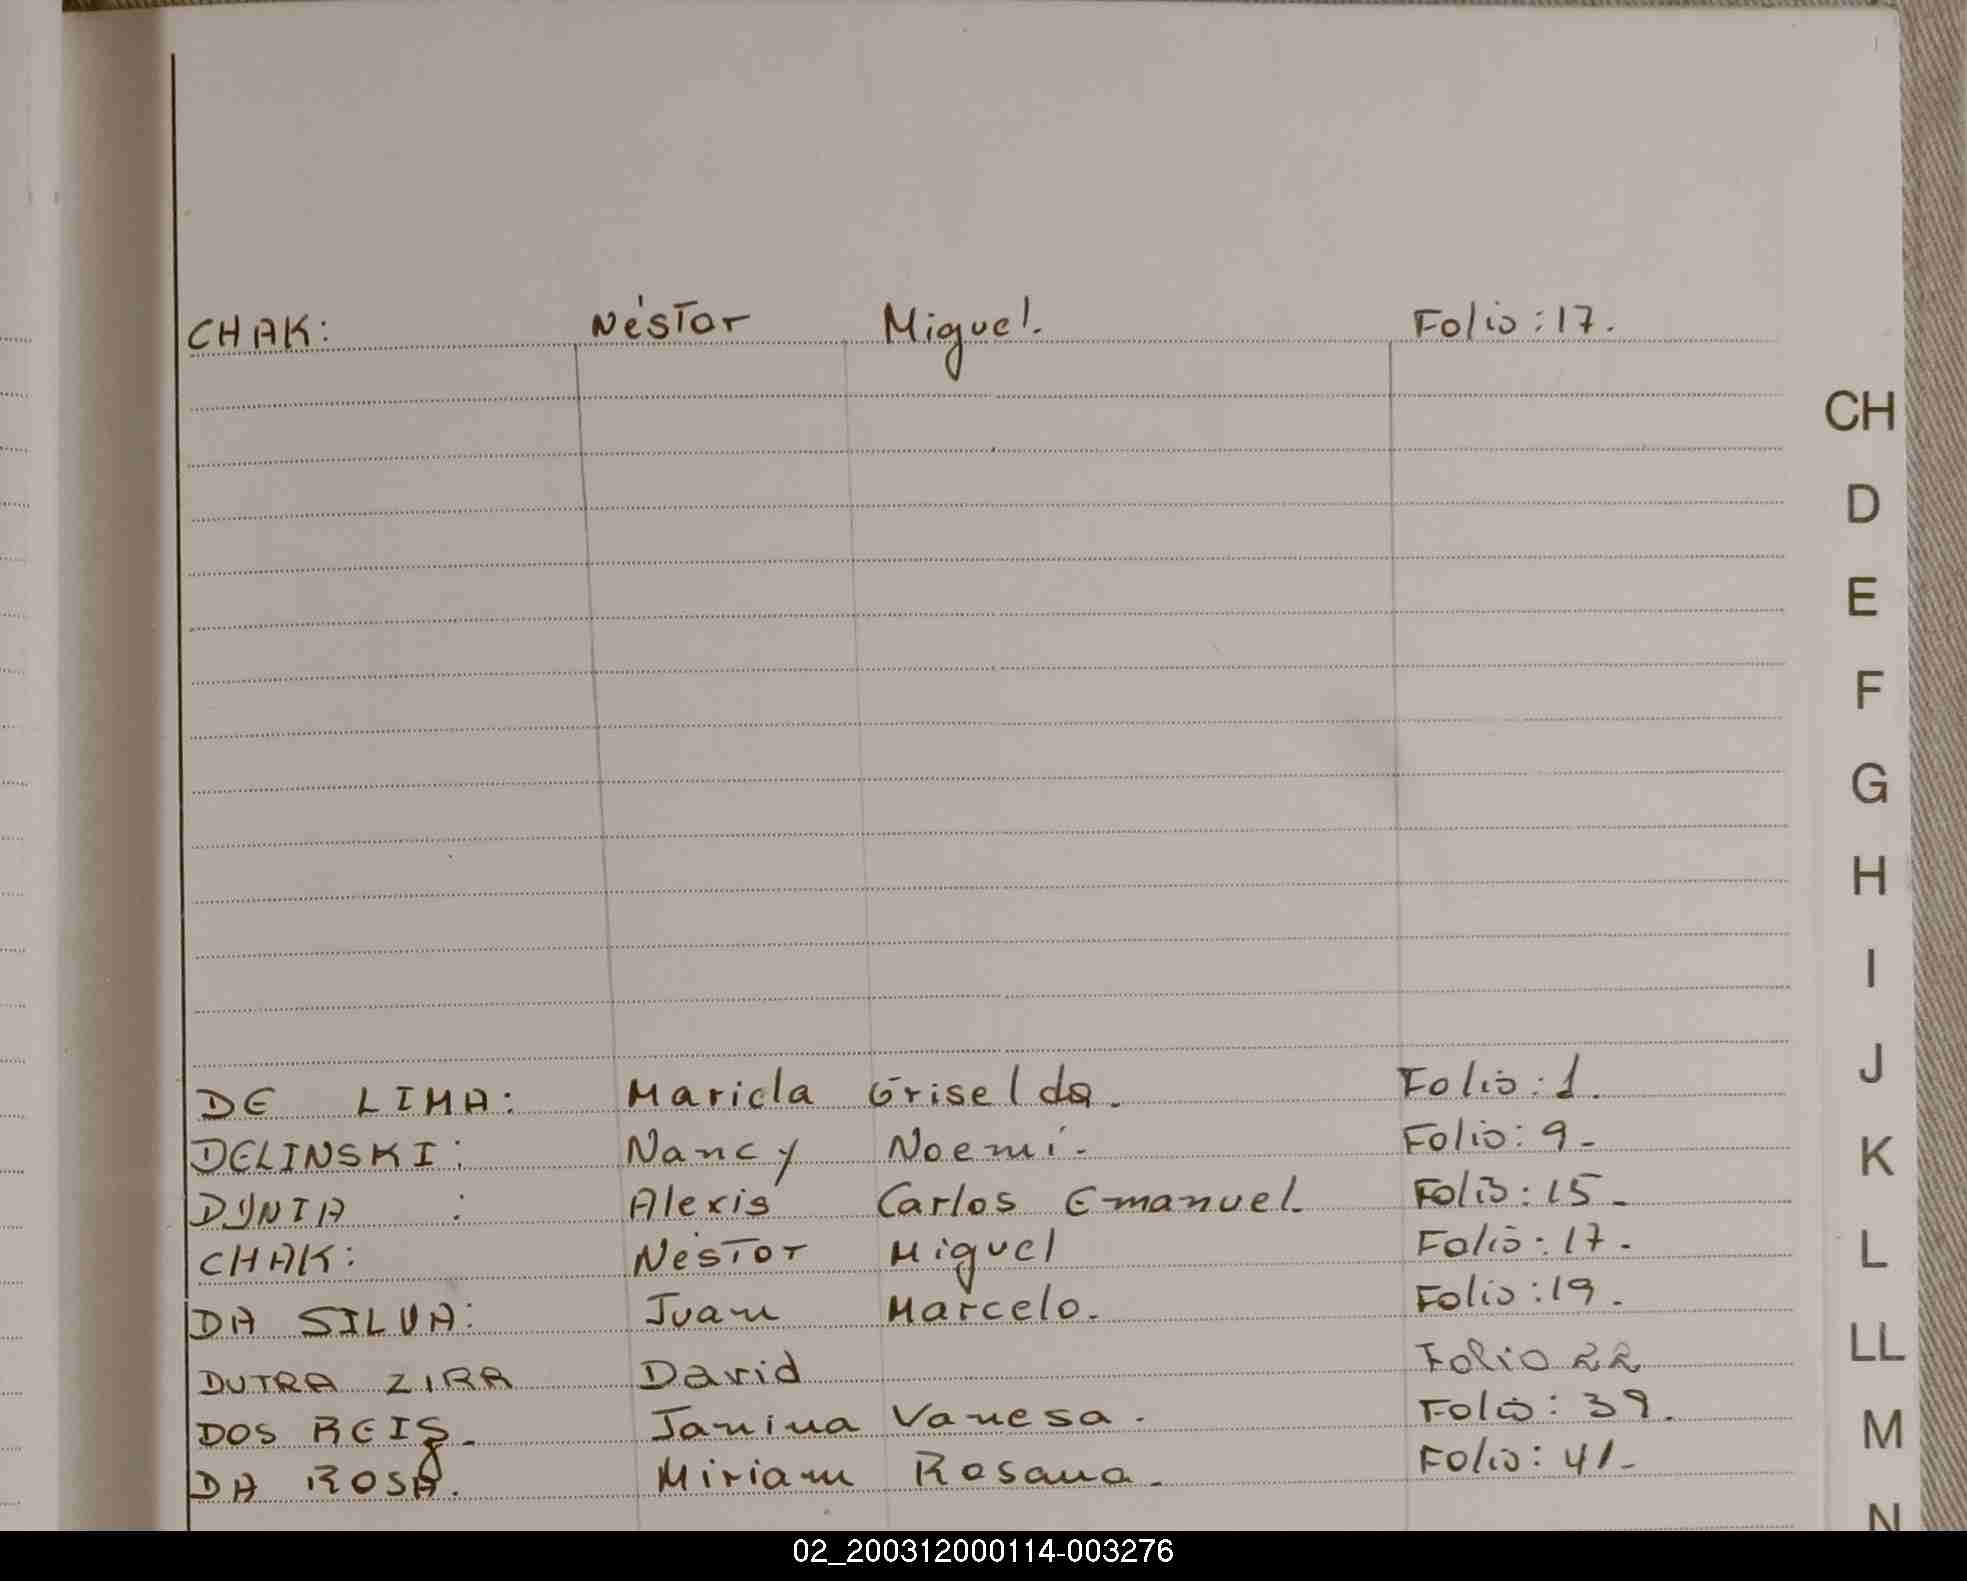 CHAK: Néstor Miguel. Folio: 17.
CH
D
E
F
G
H
I
J
K
L
LL
M
N
DE LIMA: Mariela Griselda. Folio: 1.
DELINSKI: Nancy Noemí. Folio: 9-
DUNIA : Alexis Carlos Emanuel. Folio: 15-
CHAK: Néstor Miguel Folio: 17-
DA SILVA: Juan Marcelo. Folio: 19.
DUTRA ZIRR David Folio 22
DOS REIS- Janina Vanesa. Folio: 39.
DA ROSA. Miriam Rosana. Folio: 41-
02_200312000114-003276